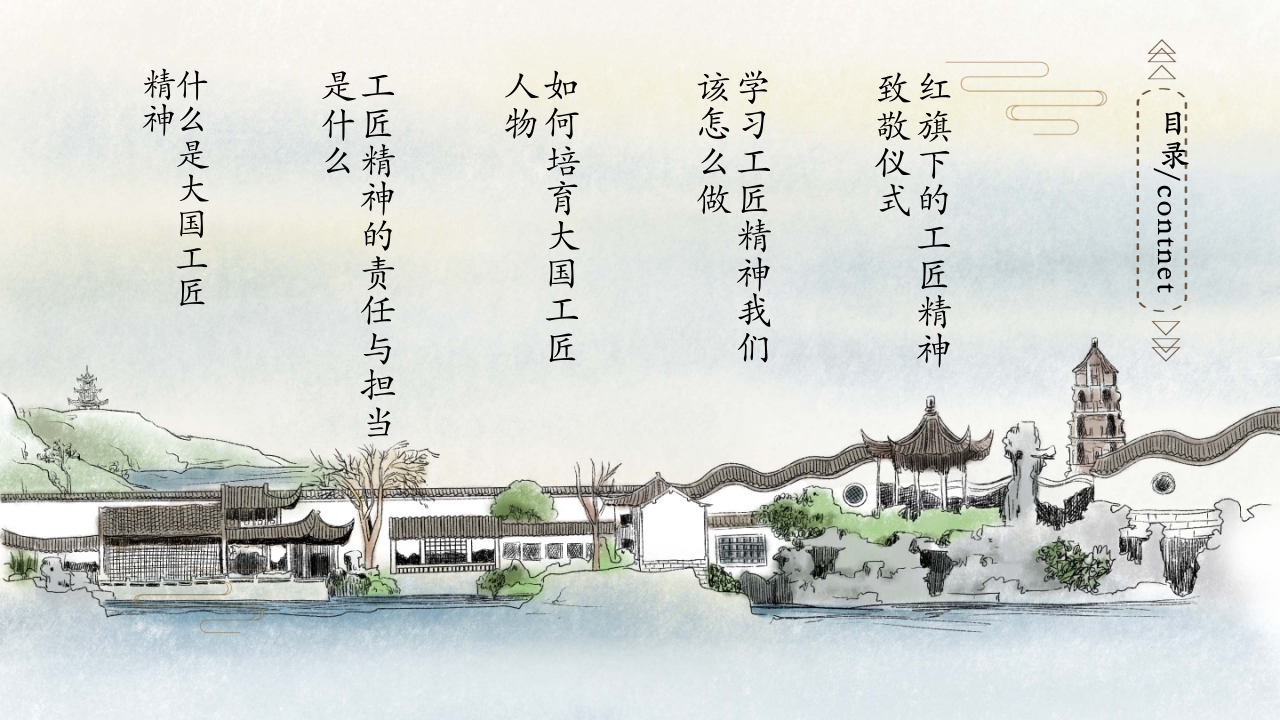 目录/contnet
红旗下的工匠精神
致敬仪式
学习工匠精神我们
该怎么做
如何培育大国工匠
人物
工匠精神的责任与担当
是什么
什么是大国工匠
精神